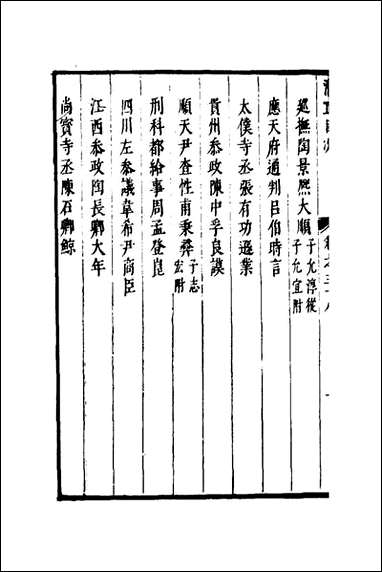 巡撫陶景熈大順子允淳從子允宜附
應天府通判呂伯時言
太僕寺丞張有功遜業
貴州叅政陳中孚良謨
順天尹查性甫秉彝子志宏附
刑科都給事周孟登崑
四川左叅議韋希尹商臣
江西叅政陶長卿大年
尚寳寺丞陳石卿鯨